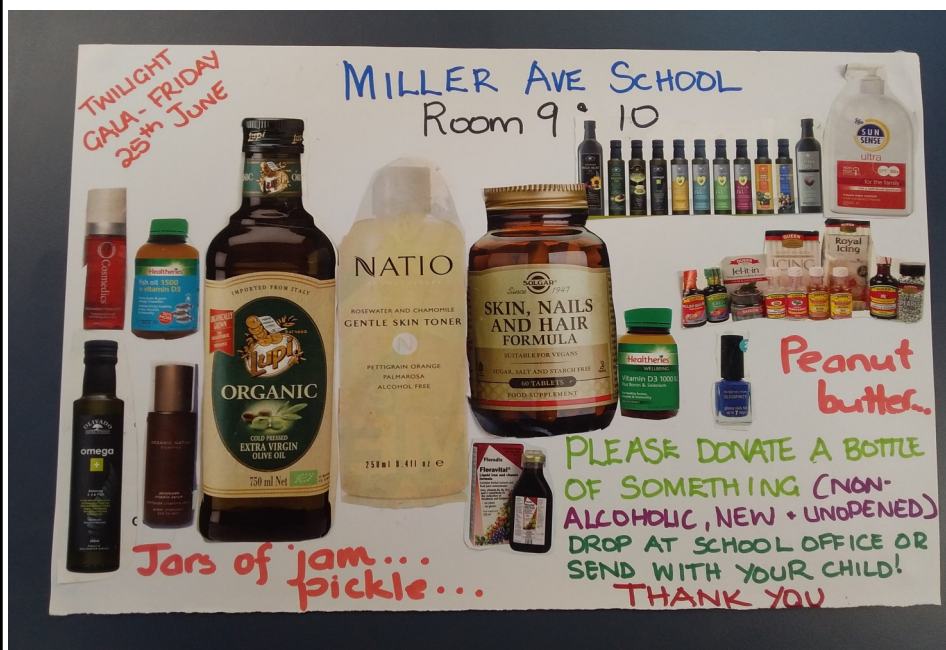 TWILIGHT
GALA - FRIDAY
25th JUNE
MILLER AVE SCHOOL
Room 9 : 10
SUN
SENSE
ultra
for the family
QUEEN
Royal
Icing
QUEEN
ICING
Jel-it-in
Cosmetics
Healtheries
Fish oil 1500
+ vitamin D3
Lupi
IMPORTED FROM ITALY
Lupi
ORGANIC
COLD PRESSED
EXTRA VIRGIN
OLIVE OIL
750 ml Net
NATIO
ROSEWATER AND CHAMOMILE
GENTLE SKIN TONER
N
PETTIGRAIN ORANGE
PALMAROSA
ALCOHOL FREE
250ml 8.4fl oz e
SOLGAR
Since 1947
SKIN, NAILS
AND HAIR
FORMULA
SUITABLE FOR VEGANS
SUGAR, SALT AND STARCH FREE
60 TABLETS
FOOD SUPPLEMENT
Healtheries
WELLBEING
Vitamin D3 1000
Peanut
butter...
OLIVADO
omega
+
Floradix
Floravital
PLEASE DONATE A BOTTLE
OF SOMETHING (NON-
ALCOHOLIC, NEW + UNOPENED)
DROP AT SCHOOL OFFICE OR
SEND WITH YOUR CHILD!
THANK YOU
Jars of jam...
pickle...